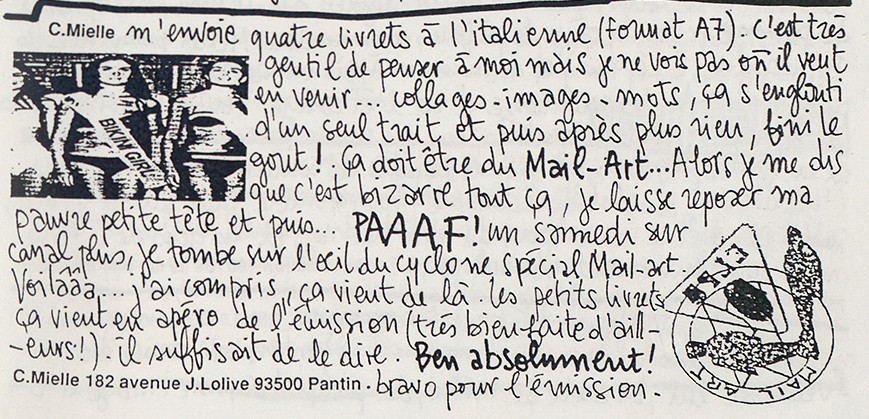 C.Mielle m'envoie quatre livrets à l'italienne (format A7). C'est très
gentil de penser à moi mais je ne vois pas où il veut
en venir... collages-images-mots, ça s'englouti
d'un seul trait et puis après plus rien, fini le
gout! Ça doit être du Mail-Art...Alors je me dis
que c'est bizarre tout ça, je laisse reposer ma
pauvre petite tête et puis... PAAAF! un samedi sur
canal plus, je tombe sur l'oeil du cyclone spécial Mail-art.
Voilààà... j'ai compris, ça vient de là. les petits livrets
ça vient en apéro de l'émission (très bien faite d'aill-
-eurs!). il suffisait de le dire. Ben absolument!
C.Mielle 182 avenue J.Lolive 93500 Pantin. bravo pour l'émission.
BIKINI GIRL
MAIL ART